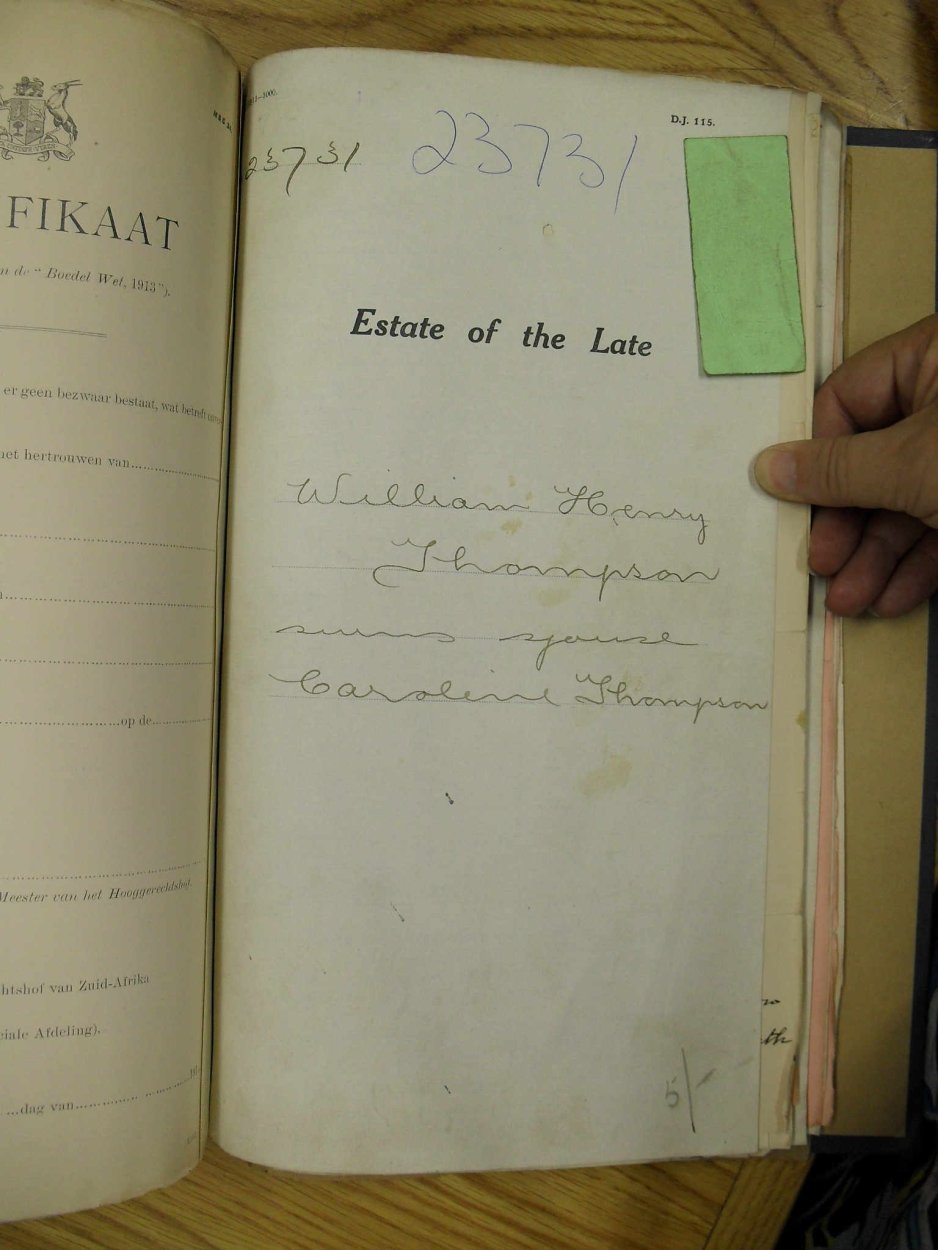 FIKAAT
n de "Boedel Wet, 1913").
er geen bezwaar bestaat, wat betreft
het hertrouwen van
op de
Meester van het Hooggerechtshof.
htshof van Zuid-Afrika
ciale Afdeling).
dag van
D.J. 115.
23731 23731
Estate of the Late
William Henry
Thompson
surv spouse
Caroline Thompson
5/-